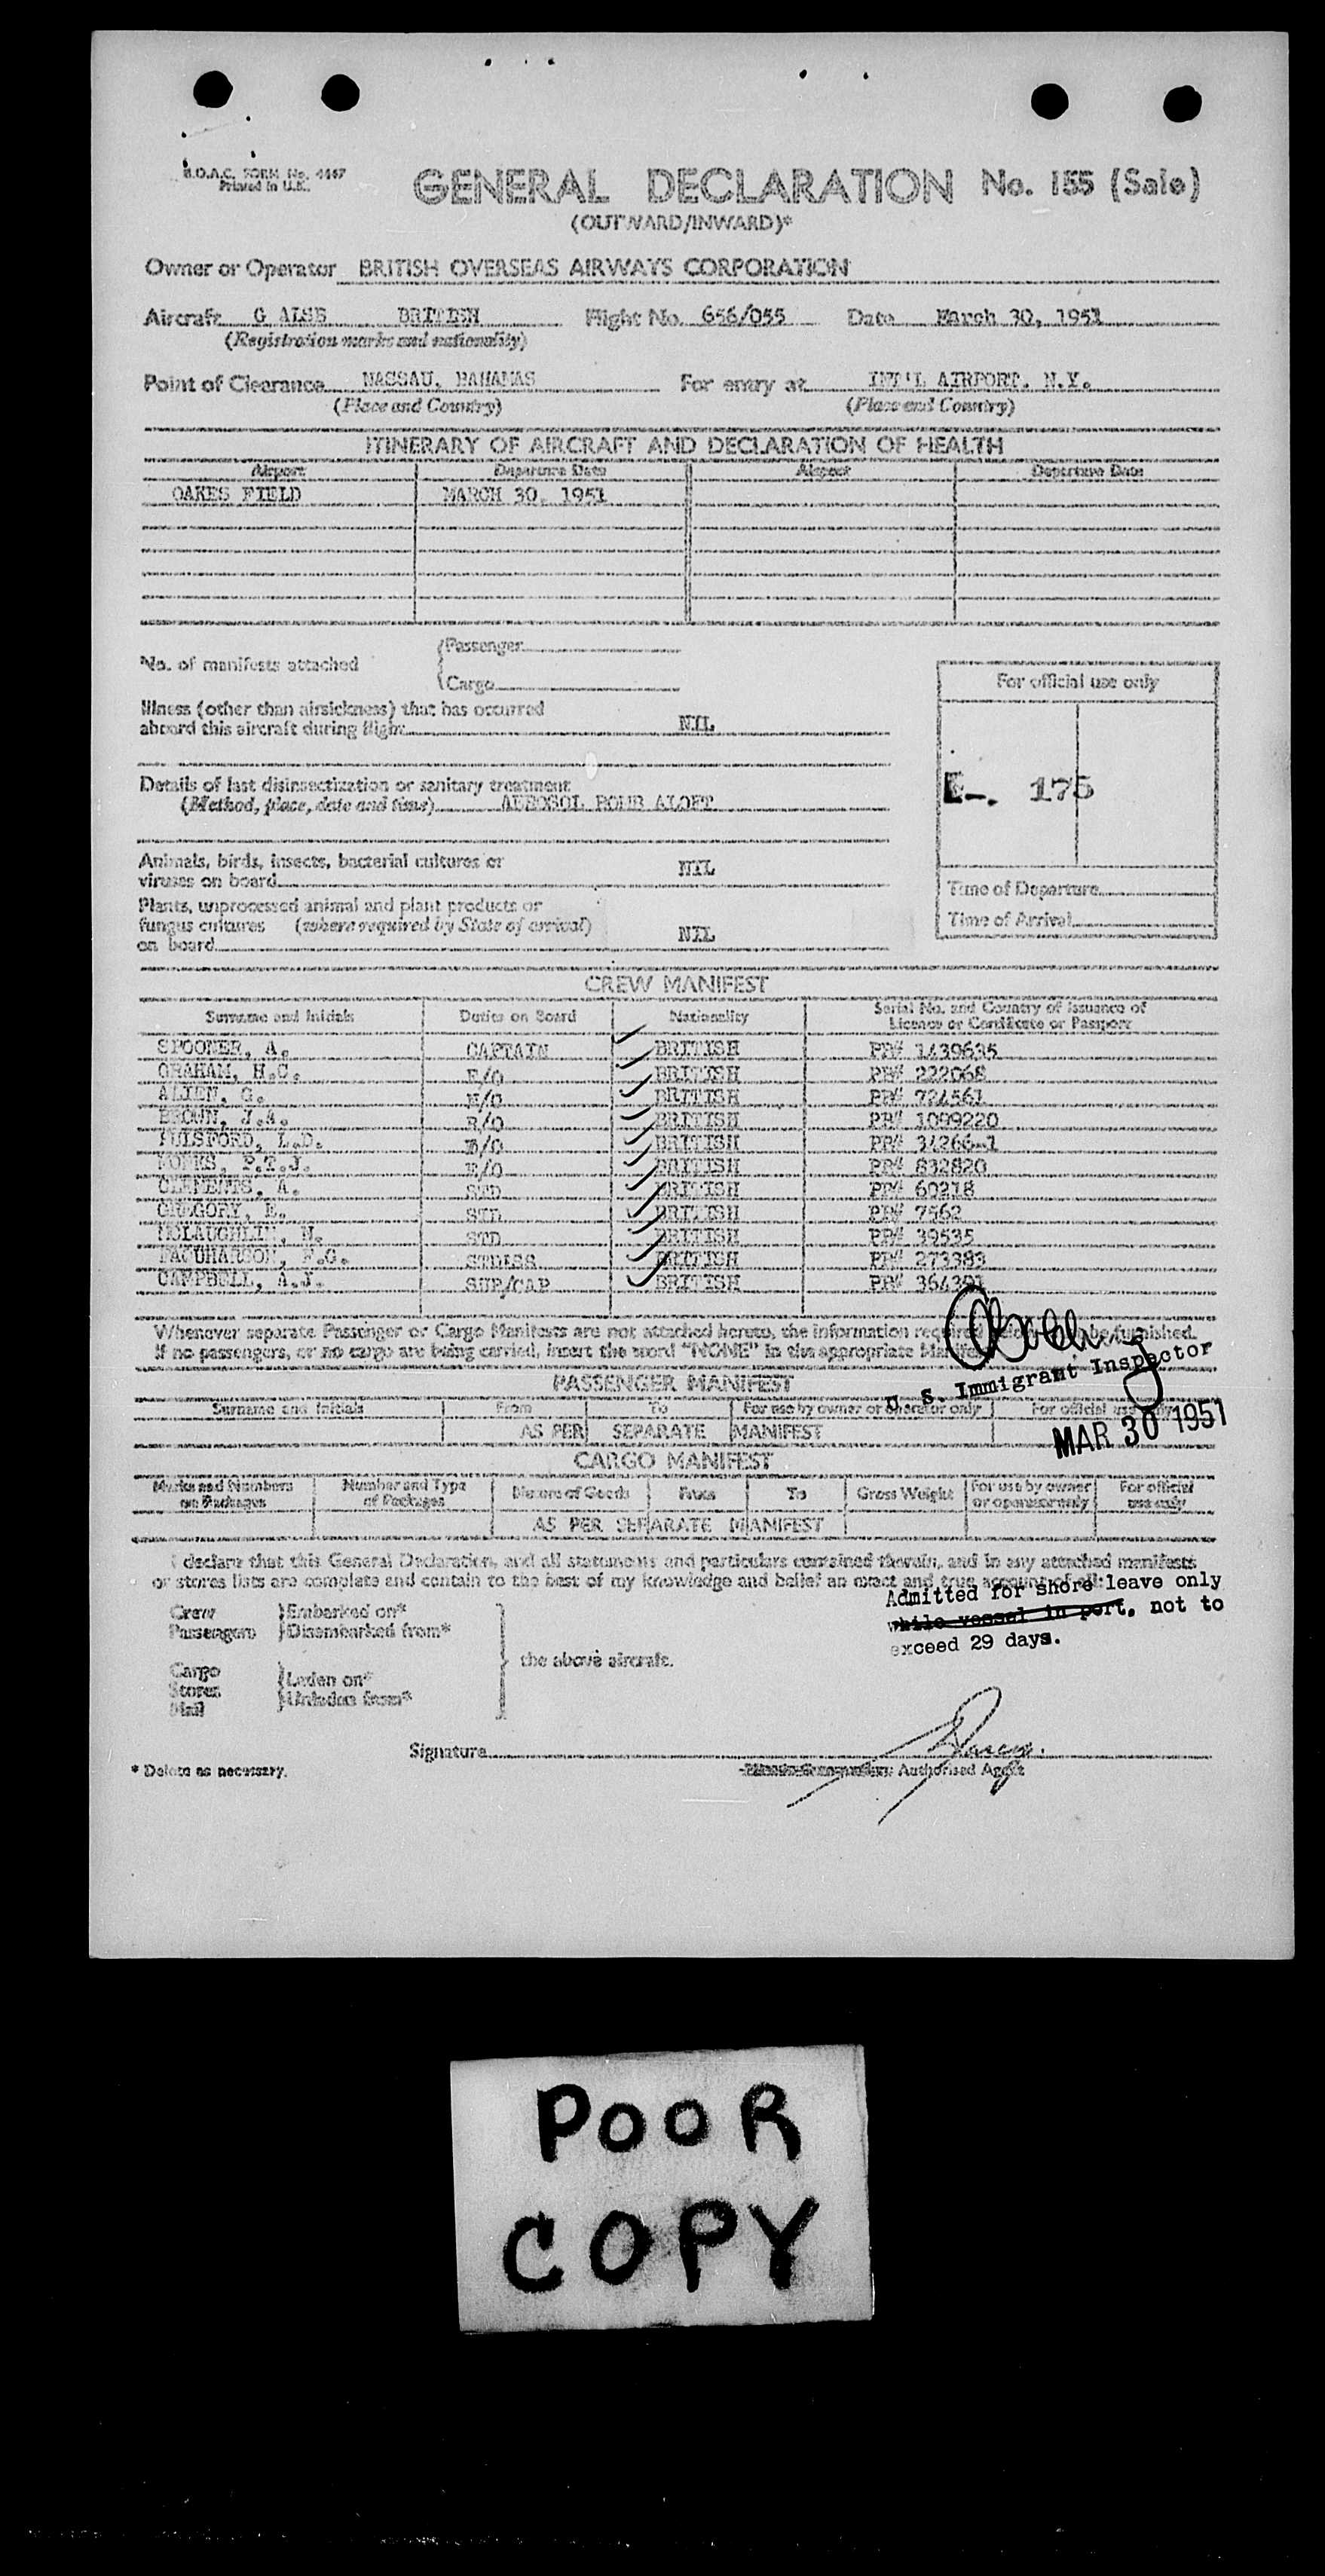 B.O.A.C. FORM No. 4447
Printed in U.K.
GENERAL DECLARATION No. 155 (Sale)
(OUTWARD/INWARD)*
Owner or Operator BRITISH OVERSEAS AIRWAYS CORPORATION
Aircraft G ALSB BRITISH Flight No. 656/055 Date March 30, 1951
(Registration marks and nationality)
Point of Clearance NASSAU, BAHAMAS For entry at INT'L AIRPORT, N.Y.
(Place and Country) (Place and Country)
ITINERARY OF AIRCRAFT AND DECLARATION OF HEALTH
Airport Departure Date Airport Departure Date
OAKES FIELD MARCH 30, 1951
No. of manifests attached
Passenger
Cargo
For official use only
Illness (other than airsickness) that has occurred
aboard this aircraft during flight NIL
Details of last disinsectization or sanitary treatment
(Method, place, date and time) AEROSOL BOMB ALOFT
E-. 175
Animals, birds, insects, bacterial cultures or
viruses on board NIL
Time of Departure
Plants, unprocessed animal and plant products or
fungus cultures (where required by State of arrival)
on board NIL
Time of Arrival
CREW MANIFEST
Surname and Initials Duties on Board Nationality Serial No. and Country of Issuance of
Licence or Certificate or Passport
SPOONER, A. CAPTAIN BRITISH PP# 1439635
GRAHAM, H.C. F/O BRITISH PP# 222068
ALLEN, G. BRITISH PP# 724561
BROWN, J.A. R/O BRITISH PP# 1099220
PULSFORD, L.D. BRITISH PP# 34266-1
MONKS, P.T.J. E/O BRITISH PP# 832820
CLEMENTS, A. STD BRITISH PP# 60218
GREGORY, E. STD BRITISH PP# 7562
MCLAUGHLIN, N. STD BRITISH PP# 39535
FAQUHARSON, F.G. STDESS BRITISH PP# 273383
CAMPBELL, A.J. SUP/CAP BRITISH PP# 364391
Whenever separate Passenger or Cargo Manifests are not attached hereto, the information required be furnished.
If no passengers, or no cargo are being carried, insert the word "NONE" in the appropriate Manifest
U. S. Immigrant Inspector
PASSENGER MANIFEST
Surname and Initials From To For use by owner or operator only For official use only
AS PER SEPARATE MANIFEST
MAR 30 1951
CARGO MANIFEST
Marks and Numbers on Packages Number and Type of Packages Nature of Goods From To Gross Weight For use by owner or operator only For official use only
AS PER SEPARATE MANIFEST
I declare that this General Declaration, and all statements and particulars contained therein, and in any attached manifests
or stores lists are complete and contain to the best of my knowledge and belief an exact and true account of all:
Admitted for shore leave only
while vessel in port, not to
exceed 29 days.
Crew Embarked on*
Passengers Disembarked from*
the above aircraft.
Cargo
Stores Laden on*
Mail Unladen from*
Signature
* Delete as necessary.
Authorised Agent
POOR
COPY